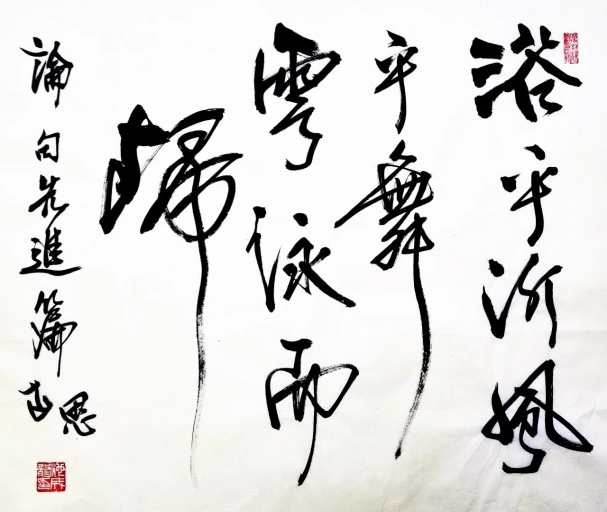 浴乎沂風
乎舞
雩詠而
歸
論句先進篇